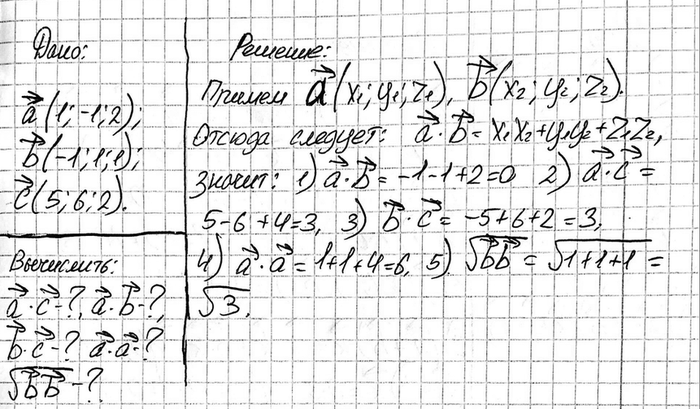 Дано:
a⃗(1; -1; 2);
b⃗(-1; 1; 1);
c⃗(5; 6; 2).
Вычислить:
a⃗·c⃗-?, a⃗·b⃗-?,
b⃗·c⃗-? a⃗·a⃗-?
√b⃗b⃗-?
Решение:
Примем a⃗(x₁; y₁; z₁), b⃗(x₂; y₂; z₂).
Отсюда следует: a⃗·b⃗=x₁x₂+y₁y₂+z₁z₂,
значит: 1) a⃗·b⃗=-1-1+2=0 2) a⃗·c⃗=
5-6+4=3, 3) b⃗·c⃗=-5+6+2=3,
4) a⃗·a⃗=1+1+4=6, 5) √b⃗b⃗=√1+1+1=
√3.